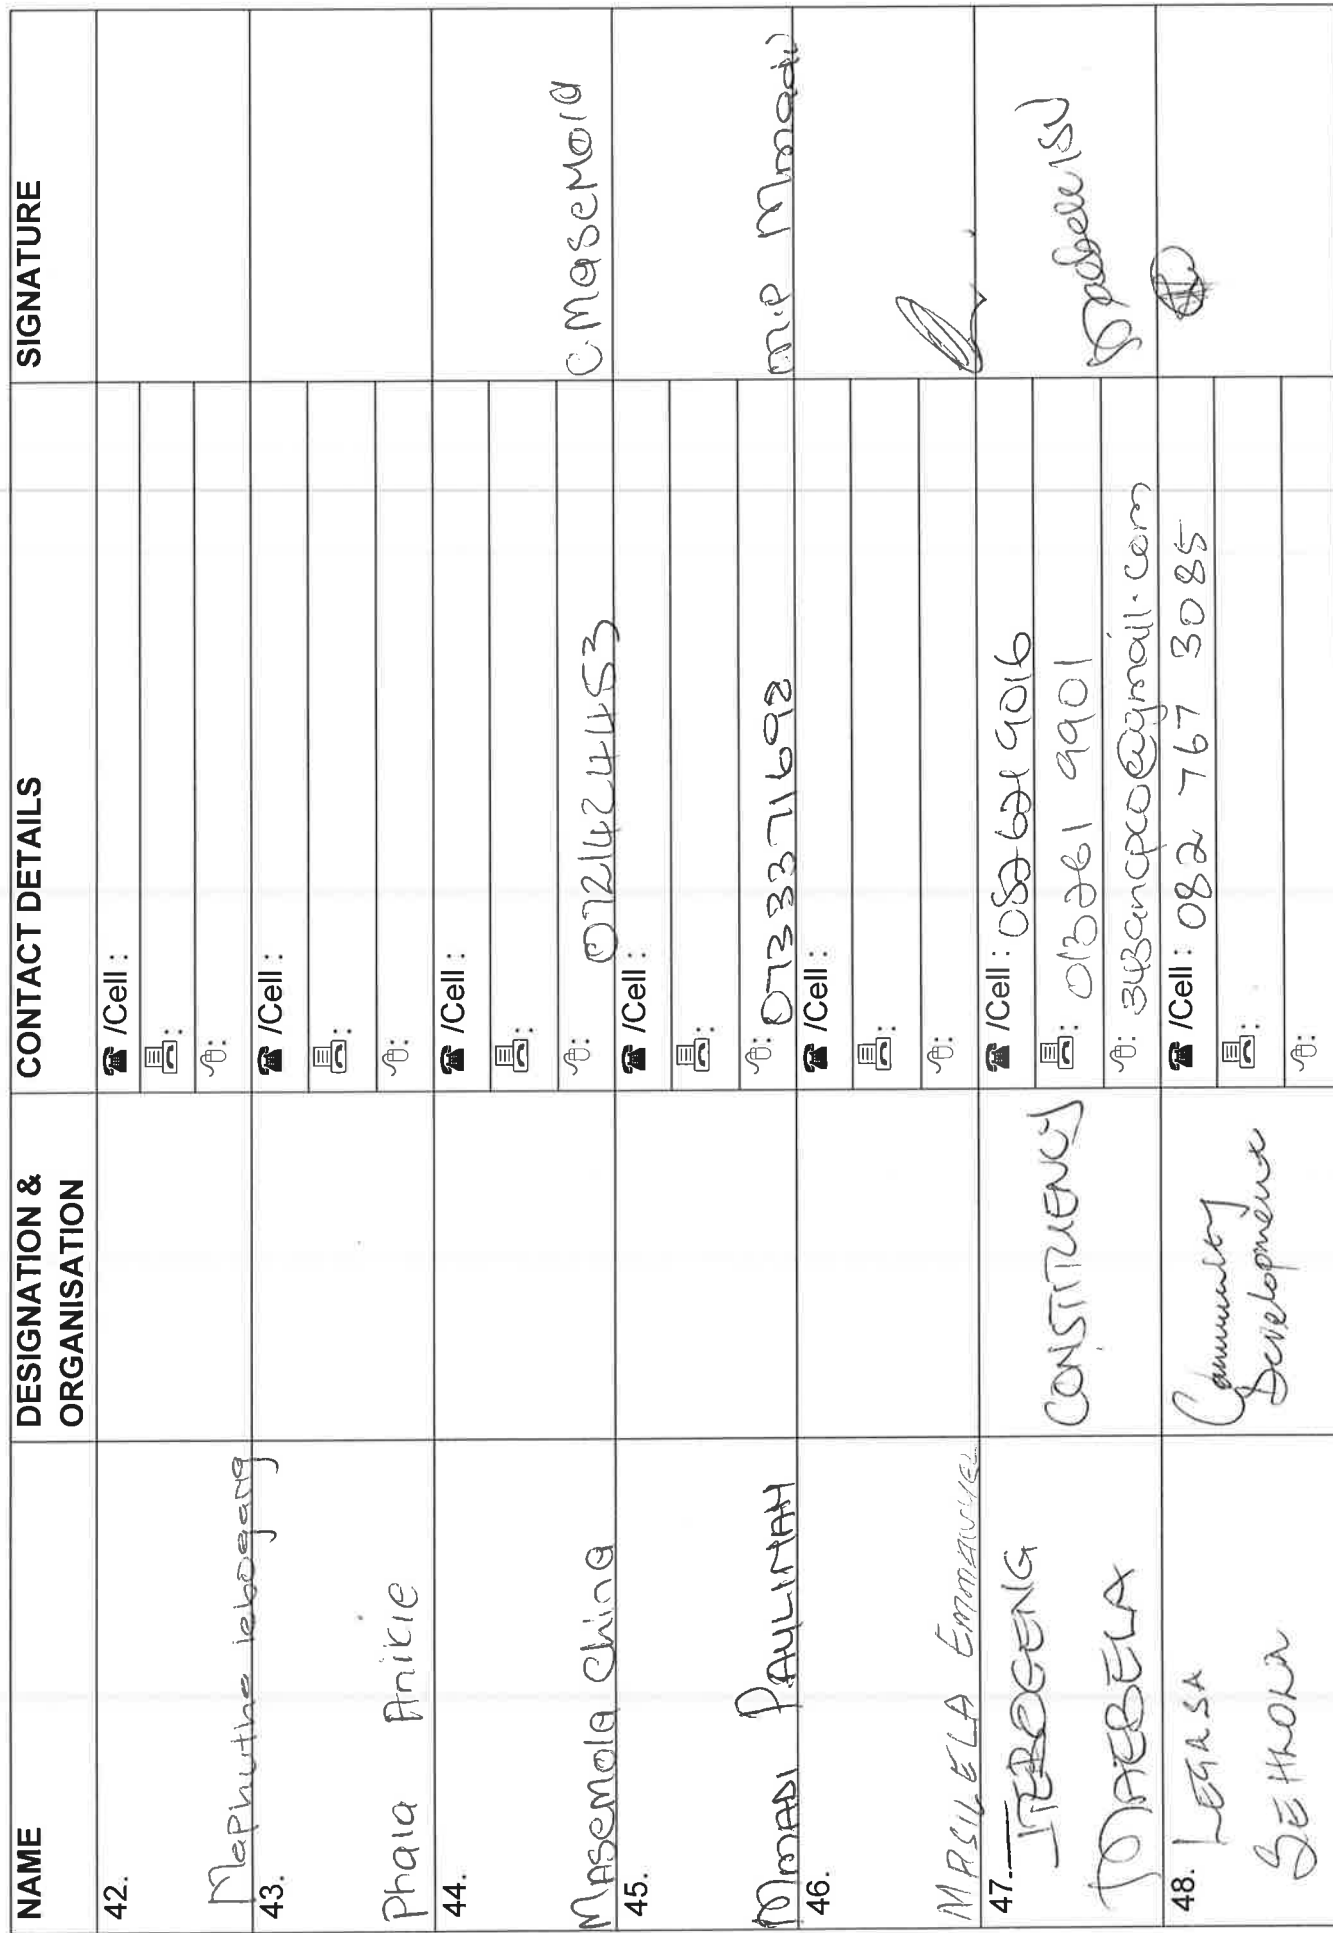 NAME
DESIGNATION &
ORGANISATION
CONTACT DETAILS
SIGNATURE
42.
Maphutha lebogang
/Cell :
:
:
43.
Phala Anikie
/Cell :
:
:
44.
Masemola China
/Cell :
:
: 0721424453
C. Masemola
45.
Mmadi PAULINAH
/Cell :
:
: 0733371692
M.P Mmadi
46.
MASILELA Emmanuel
/Cell :
:
:
47. ITEBOGENG
MAEBELA
CONSTITUENCY
/Cell : 082 621 9016
: 013261 9901
: 343ancpco@gmail.com
48. LEGASA
SEHKOLA
Community
Development
/Cell : 082 767 3085
:
: